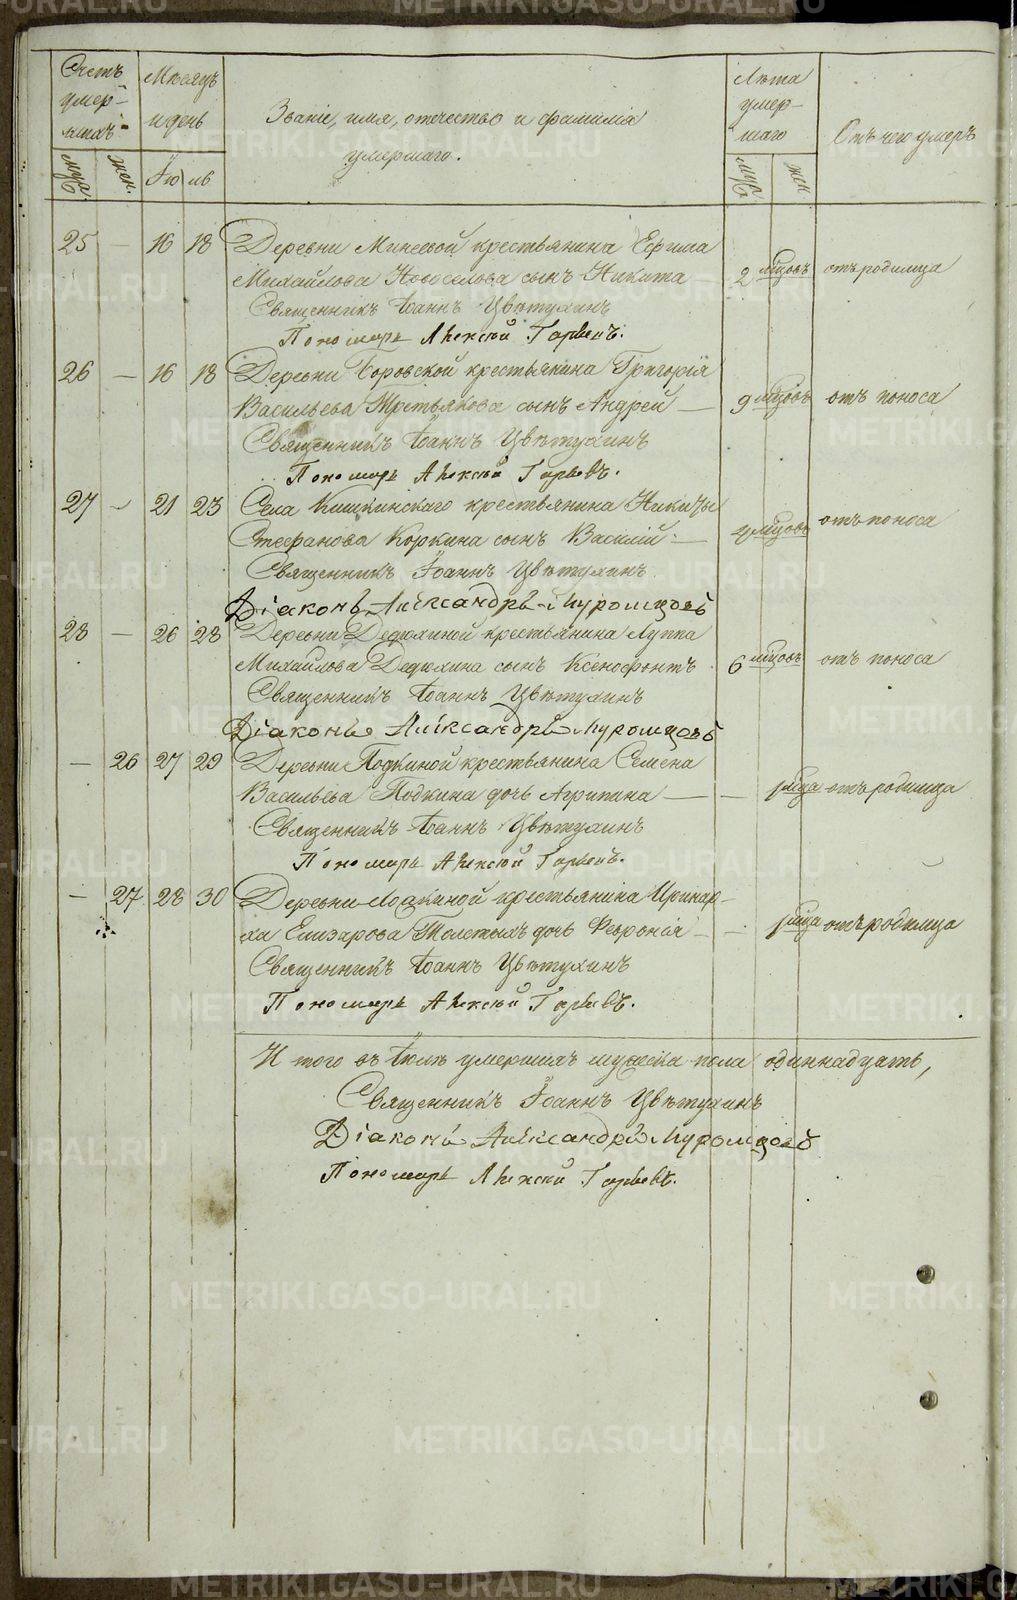 Счетъ умер- шихъ
Мѣсяцъ и день
Званіе, имя, отечество и фамилія умершаго.
Лѣта умер- шаго
Отъ чего умеръ
муж. жен. Іюль муж. жен.
25 — 16 18 Деревни Минеевой крестьянина Ефима
Михайлова Новоселова сынъ Никита 2 мѣсцовъ отъ родимца
Священникъ Іоаннъ Цвѣтухинъ
Пономарь Алексѣй Горнъ.
26 — 16 18 Деревни Боровской крестьянина Григорія
Васильева Третьякова сынъ Андрей — 9 мѣсцовъ отъ поноса
Священникъ Іоаннъ Цвѣтухинъ
Пономарь Алексѣй
27 — 21 23 Села Кишкинскаго крестьянина Никиты
Стефанова Коркина сынъ Василій — 4 мѣсцовъ отъ поноса
Священникъ Іоаннъ Цвѣтухинъ
Діаконъ Александръ Муромцовъ
28 — 26 28 Деревни Дедюхиной крестьянина Луппа
Михайлова Дедюхина сынъ Ксенофонтъ 6 мѣсцовъ отъ поноса
Священникъ Іоаннъ Цвѣтухинъ
Діаконъ Александръ Муромцовъ
— 26 27 29 Деревни Подкиной крестьянина Семена
Васильева Подкина дочь Агрипина — — 1 мѣсца отъ родимца
Священникъ Іоаннъ Цвѣтухинъ
Пономарь Алексѣй
— 27 28 30 Деревни крестьянина Иринар-
ха Елизарова Толстыхъ дочь Февронія — — 1 мѣсца отъ родимца
Священникъ Іоаннъ Цвѣтухинъ
Пономарь Алексѣй
Итого въ Іюлѣ умершихъ мужеска пола одиннадцать,
Священникъ Іоаннъ Цвѣтухинъ
Діаконъ Александръ Муромцовъ
Пономарь Алексѣй
METRIKI.GASO-URAL.RU